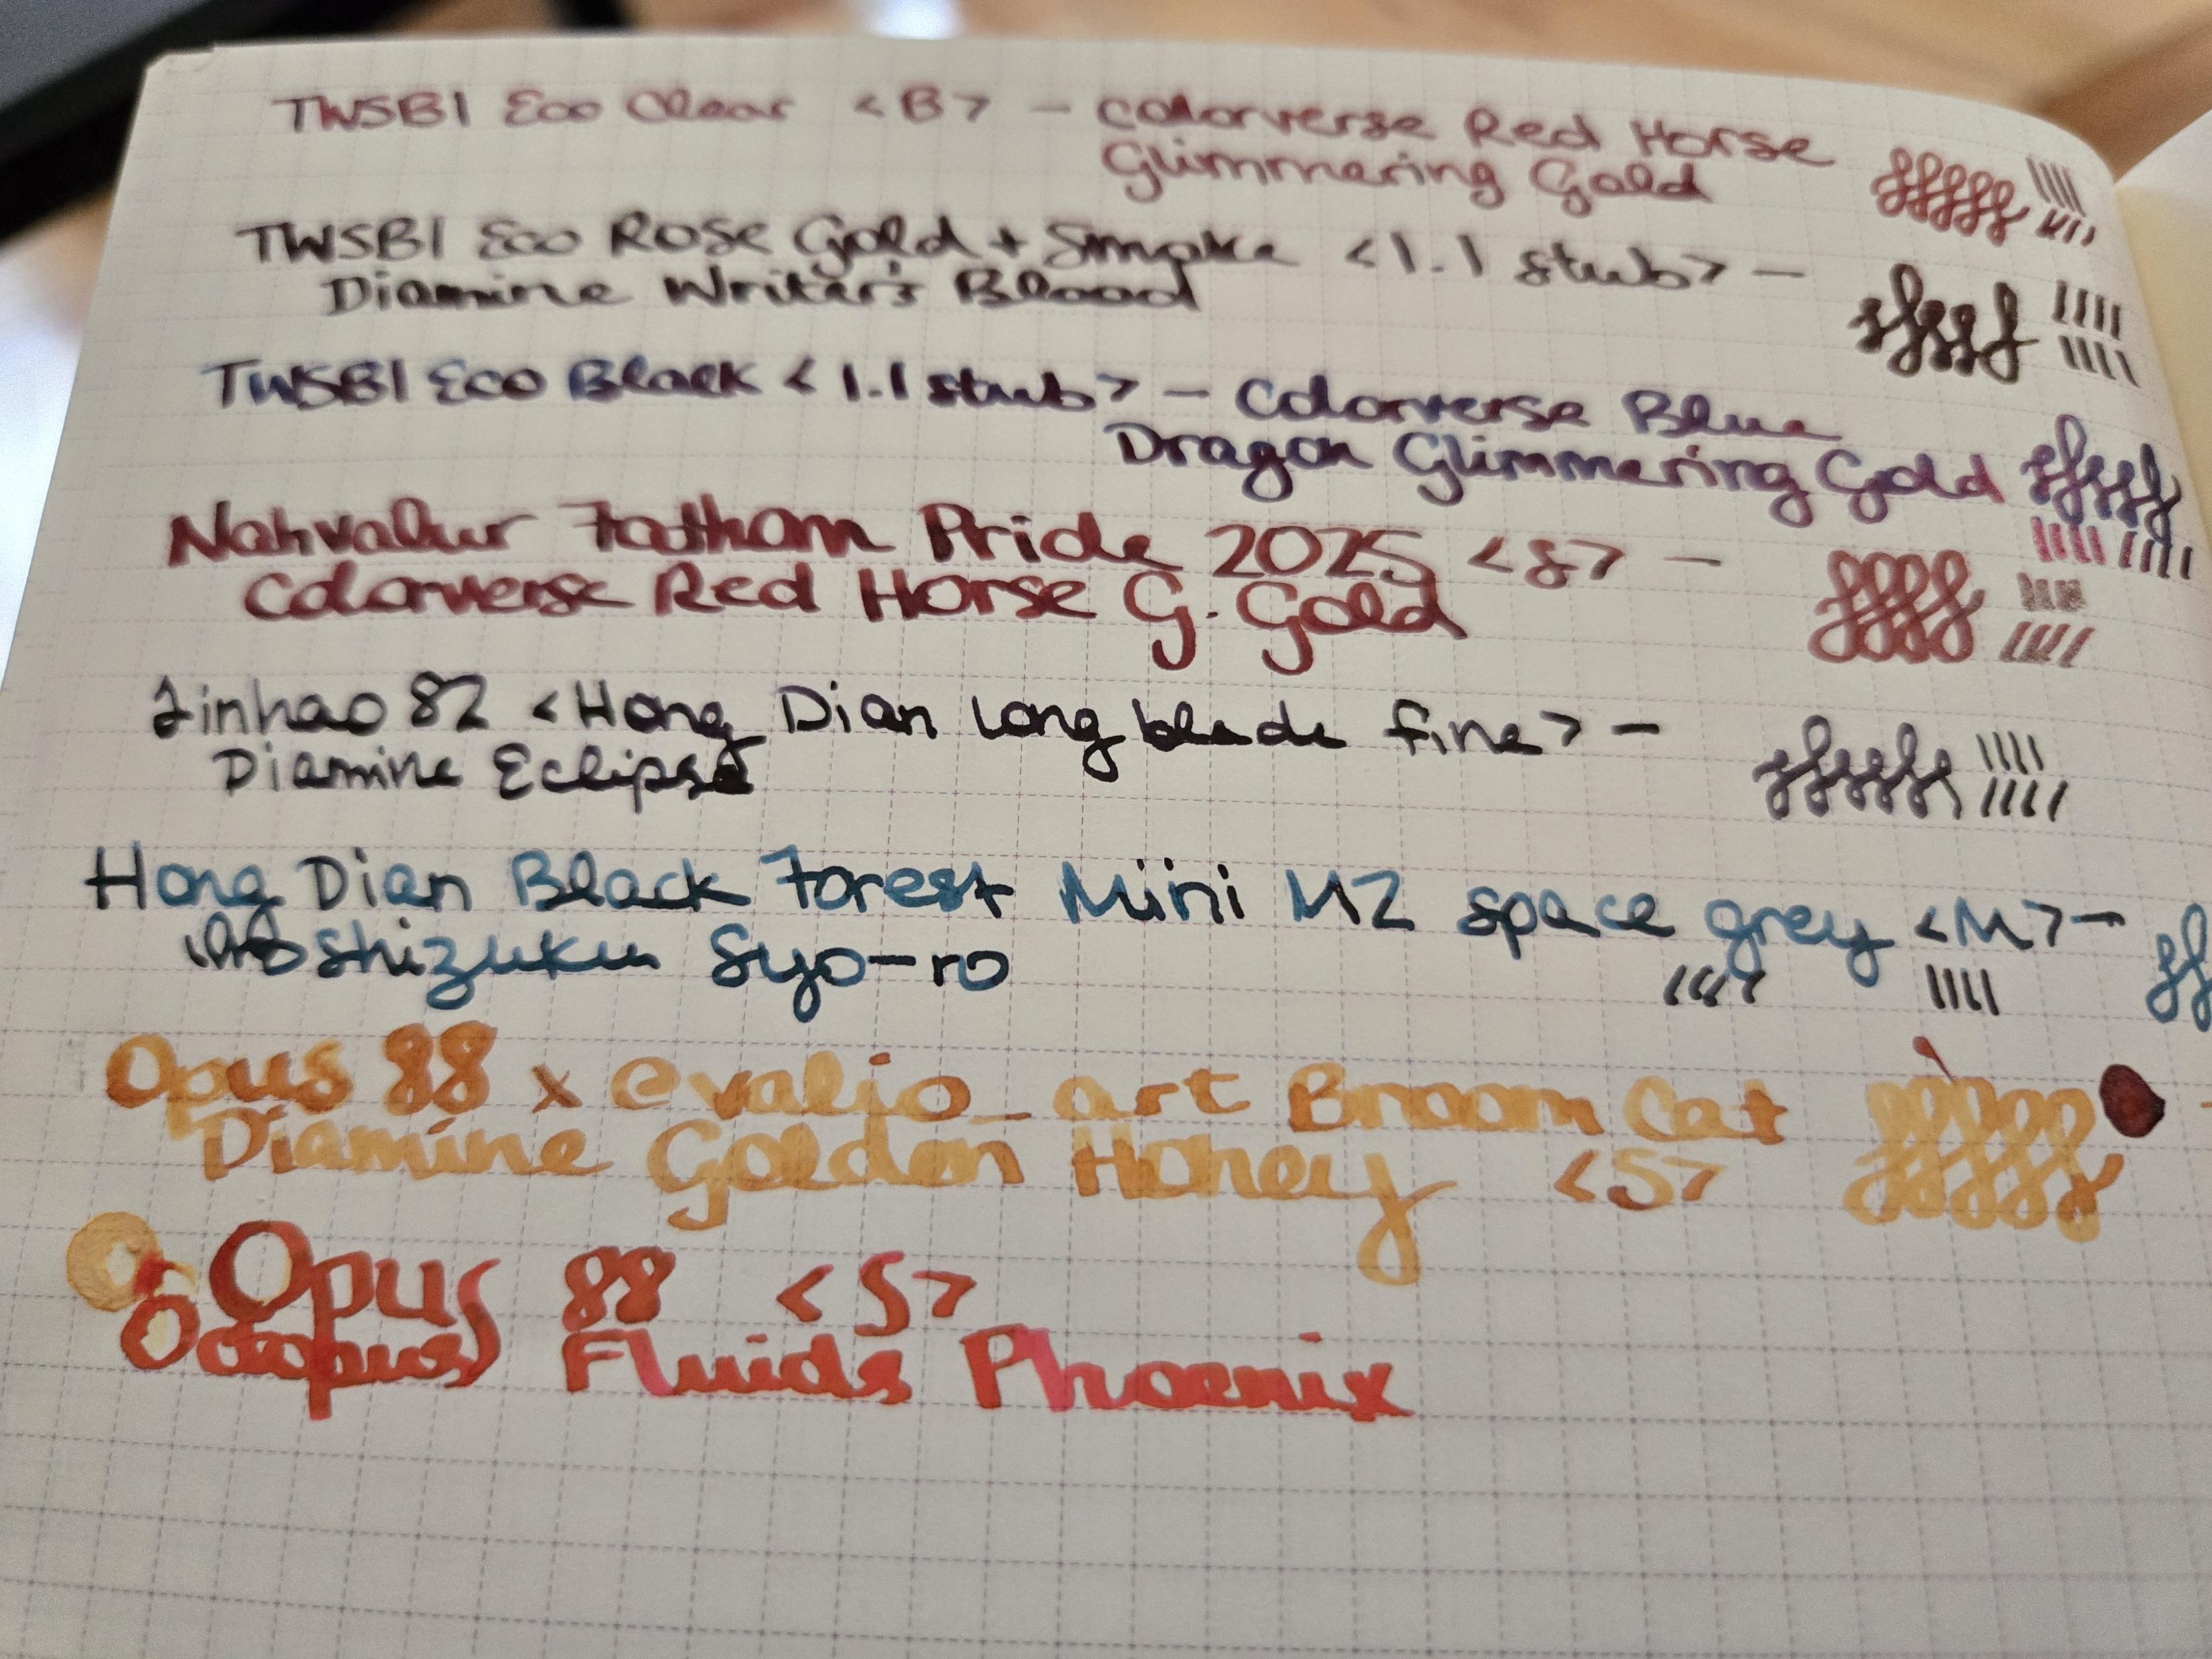 TWSBI Eco Clear <B> - Colorverse Red Horse
Glimmering Gold
TWSBI Eco Rose Gold + Smoke <1.1 stub> -
Diamine Writer's Blood
TWSBI Eco Black <1.1 stub> - Colorverse Blue
Dragon Glimmering Gold
Nahvalur Fathom Pride 2025 < > -
Colorverse Red Horse G. Gold
Jinhao 82 <Hong Dian long blade fine> -
Diamine Eclipse
Hong Dian Black Forest Mini M2 space grey <M> -
Iroshizuku Syo-ro
Opus 88 x evalio_art Broom Cat
Diamine Golden Honey <S>
Opus 88 <S>
Octopus Fluids Phoenix